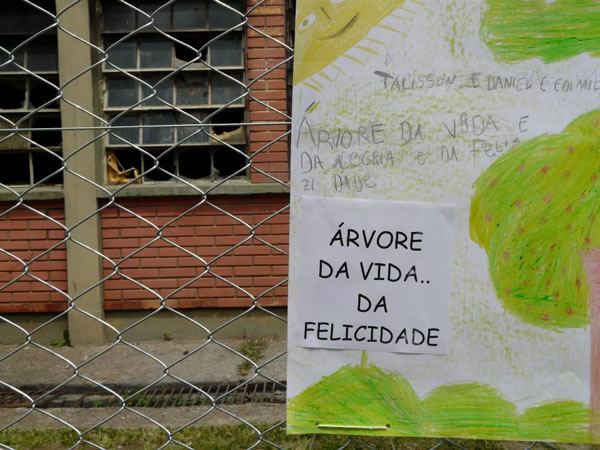 TALISSON E DANIEL E EDIMIL
ARVORE DA VIDA E
DA ALEGRIA E DA FELI
ZI DADE
ÁRVORE
DA VIDA..
DA
FELICIDADE